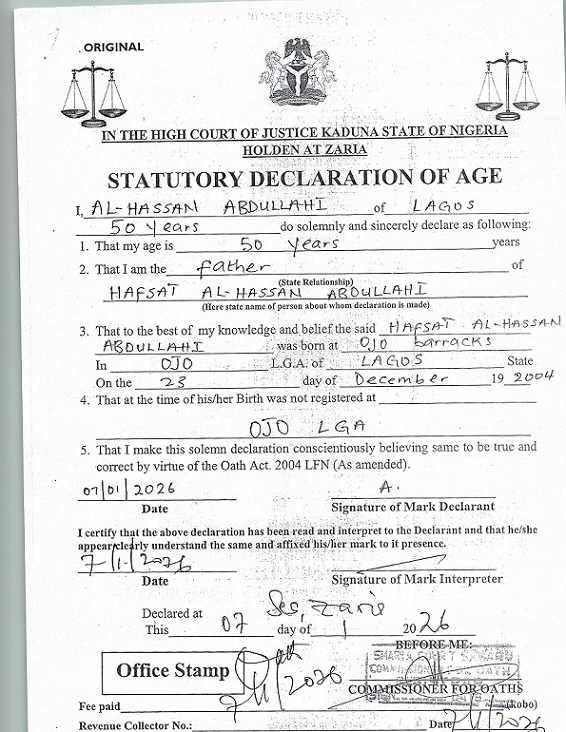 ORIGINAL
IN THE HIGH COURT OF JUSTICE KADUNA STATE OF NIGERIA
HOLDEN AT ZARIA
STATUTORY DECLARATION OF AGE
I, AL-HASSAN ABDULLAHI of LAGOS
50 years do solemnly and sincerely declare as following:
1. That my age is 50 years years
2. That I am the father of
(State Relationship)
HAFSAT AL-HASSAN ABDULLAHI
(Here state name of person about whom declaration is made)
3. That to the best of my knowledge and belief the said HAFSAT AL-HASSAN
ABDULLAHI was born at OJO barracks
In OJO L.G.A. of LAGOS State
On the 23 day of December 19 2004
4. That at the time of his/her Birth was not registered at
OJO LGA
5. That I make this solemn declaration conscientiously believing same to be true and
correct by virtue of the Oath Act. 2004 LFN (As amended).
07/01/2026 A.
Date Signature of Mark Declarant
I certify that the above declaration has been read and interpret to the Declarant and that he/she
appear clearly understand the same and affixed his/her mark to it presence.
7/1/2026
Date Signature of Mark Interpreter
Declared at Zaria
This 07 day of 1 2026
BEFORE ME:
SHARIA COURT
Office Stamp 7/1/2026
COMMISSIONER FOR OATHS
Fee paid (kobo)
Revenue Collector No.: Date 7/1/2026